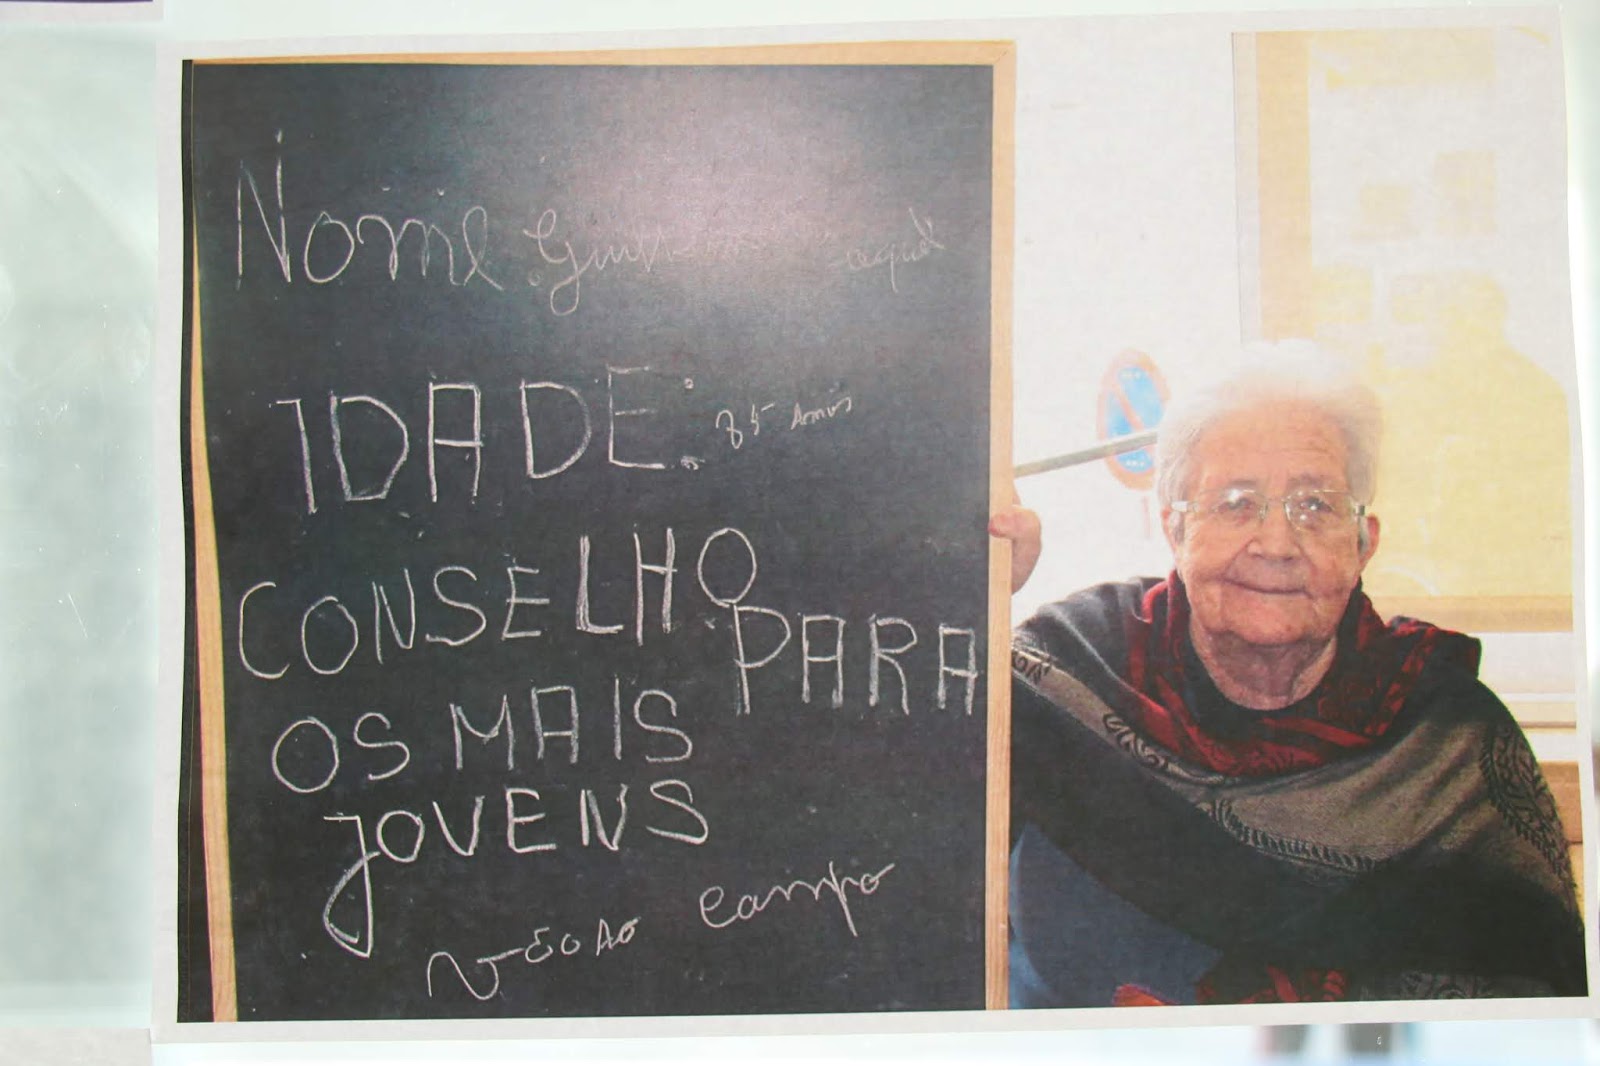 Nome
IDADE: 85 Anos
CONSELHO PARA
OS MAIS
JOVENS
vão Ao campo